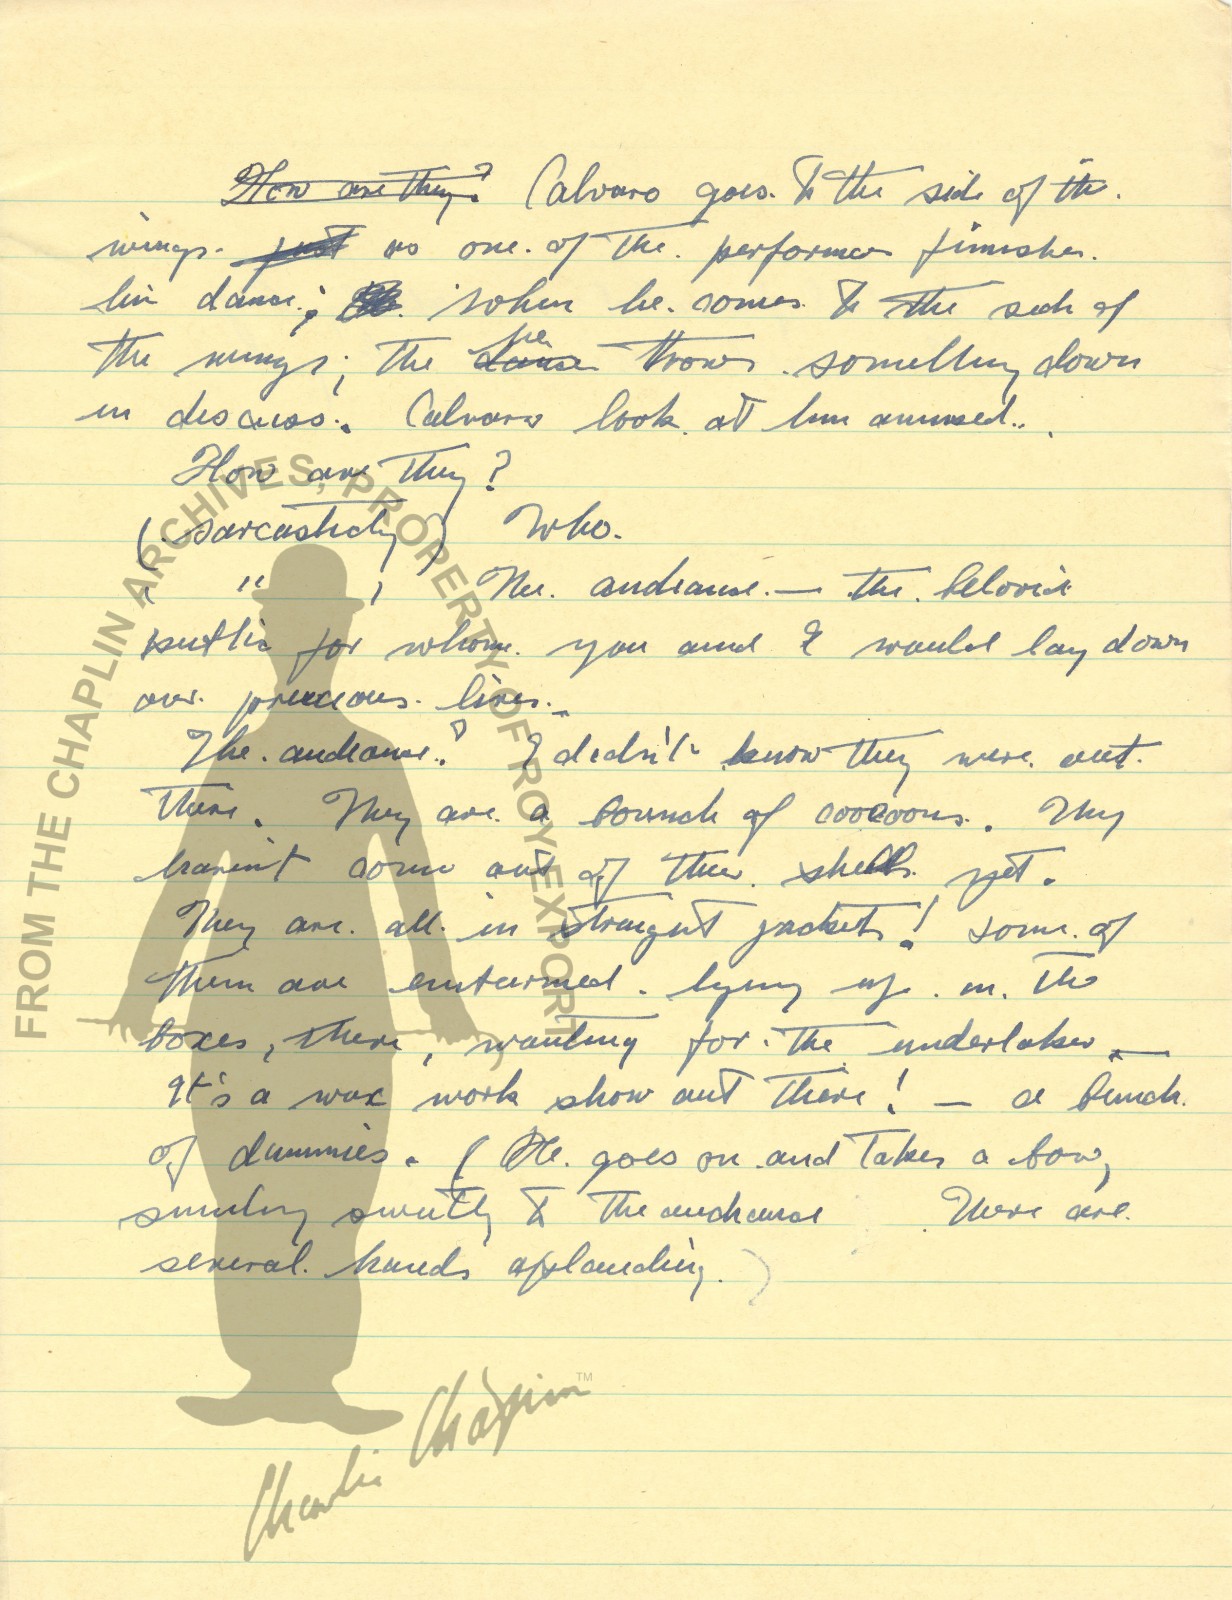 How are they? Calvaro goes to the side of the
wings. just as one of the performer finishes
his dance; when he comes to the side of
the wings; the dancer he throws something down
in discuss. Calvaro look at him amused..
How are they?
(sarcasticly) Who.
( " ) The audianse — the belovid
public for whom you and I would lay down
our precceous lives. _
The audianse? I didn't know they were out
there. They are a bounch of coocoons. They
havent come out of their shells yet.
They are all in straight jackets! some of
them are embarmed lying up in the
boxes, there, waiting for the undertaker _
It's a wax work show out there! — a bunch
of dummies. ( He goes on and takes a bow,
smiling sweetly to the audianse There are
several hands applauding. )
FROM THE CHAPLIN ARCHIVES, PROPERTY OF ROY EXPORT
Charlie Chaplin™